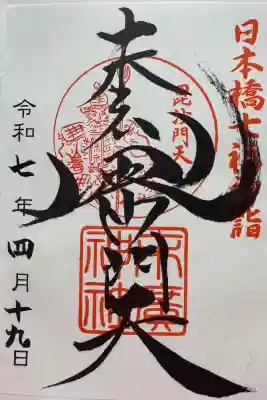 日本橋七福神詣
毘沙門天
門天
末廣神社
令和七年四月十九日